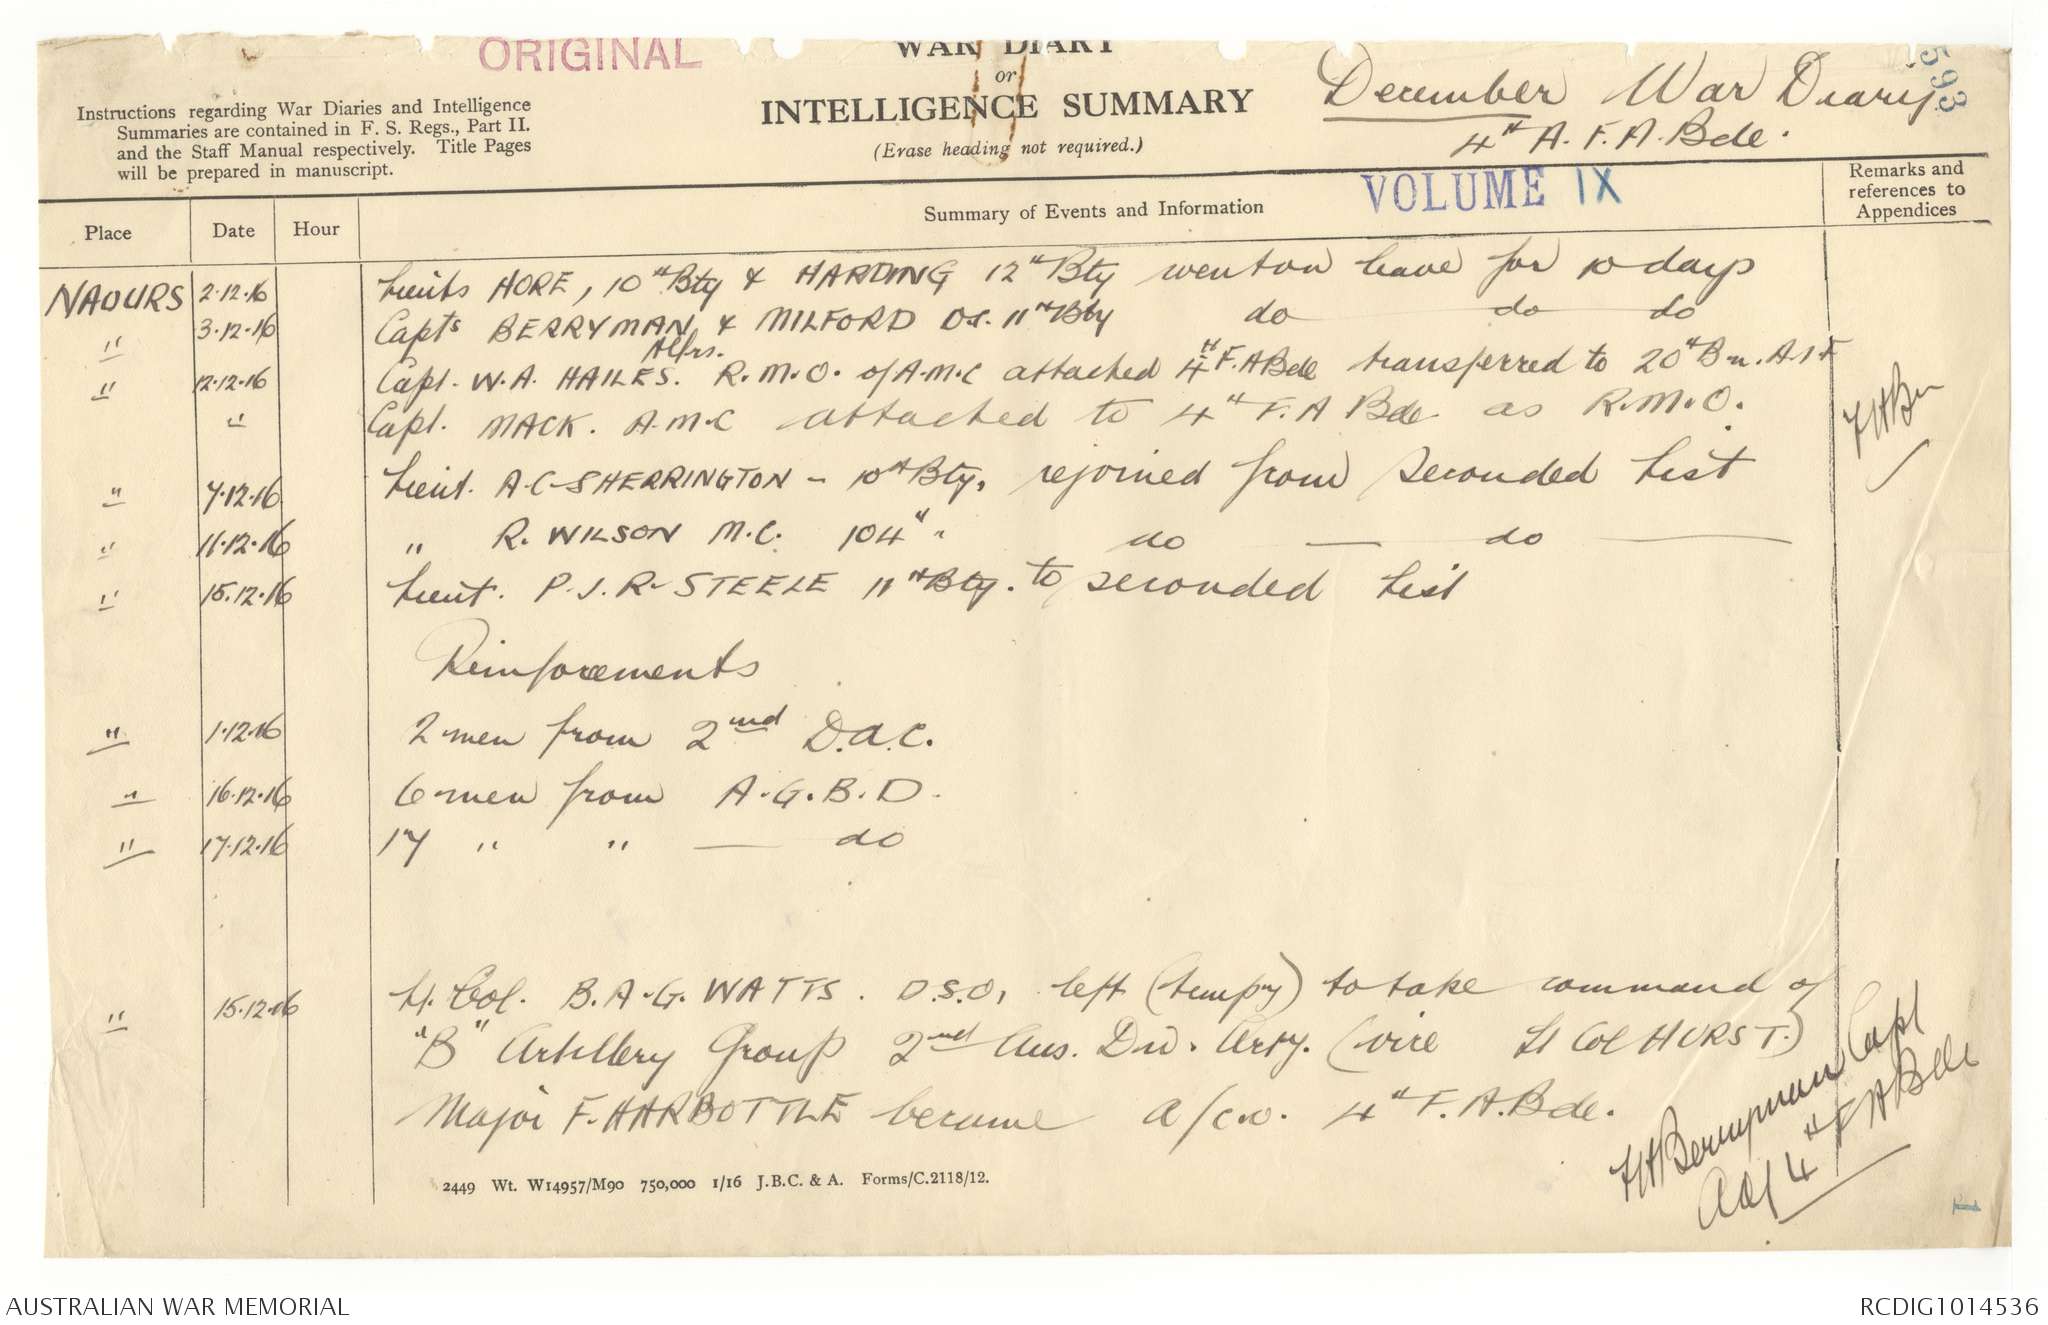 ORIGINAL
WAR DIARY
or
INTELLIGENCE SUMMARY
(Erase heading not required.)
Instructions regarding War Diaries and Intelligence
Summaries are contained in F. S. Regs., Part II.
and the Staff Manual respectively. Title Pages
will be prepared in manuscript.
December War Diary
4th A.F.A. Bde.
593
VOLUME IX
Place Date Hour Summary of Events and Information Remarks and
references to
Appendices
NAOURS 2.12.16 Lieuts HORE, 10th Bty & HARDING 12th Bty went on leave for 10 days
" 3.12.16 Capts BERRYMAN, Adjt. & MILFORD O.C. 11th Bty do do do
" 12.12.16 Capt. W.A. HAILES. R.M.O. of A.M.C attached 4th F.A Bde transferred to 20th Bn. A.I.F
" Capt. MACK. A.M.C attached to 4th F.A Bde as R.M.O.
FHBn
" 7.12.16 Lieut. A.C. SHERRINGTON - 10th Bty, rejoined from seconded list
" 11.12.16 " R. WILSON M.C. 104th " do — do —
" 15.12.16 Lieut. P.J.R. STEELE 11th Bty. to seconded list
Reinforcements
" 1.12.16 2 men from 2nd D.A.C.
" 16.12.16 6 men from A.G.B.D.
" 17.12.16 17 " " — do
" 15.12.16 Lt. Col. B.A.G. WATTS. D.S.O, left (tempy) to take command of
"B" Artillery Group 2nd Aus. Div. Arty. (vice Lt Col HURST.)
Major F. HARBOTTLE became a/c.o. 4th F.A.Bde.
FHBerryman Capt
Adj 4th F A Bde
2449 Wt. W14957/M90 750,000 1/16 J.B.C. & A. Forms/C.2118/12.
1
AUSTRALIAN WAR MEMORIAL RCDIG1014536